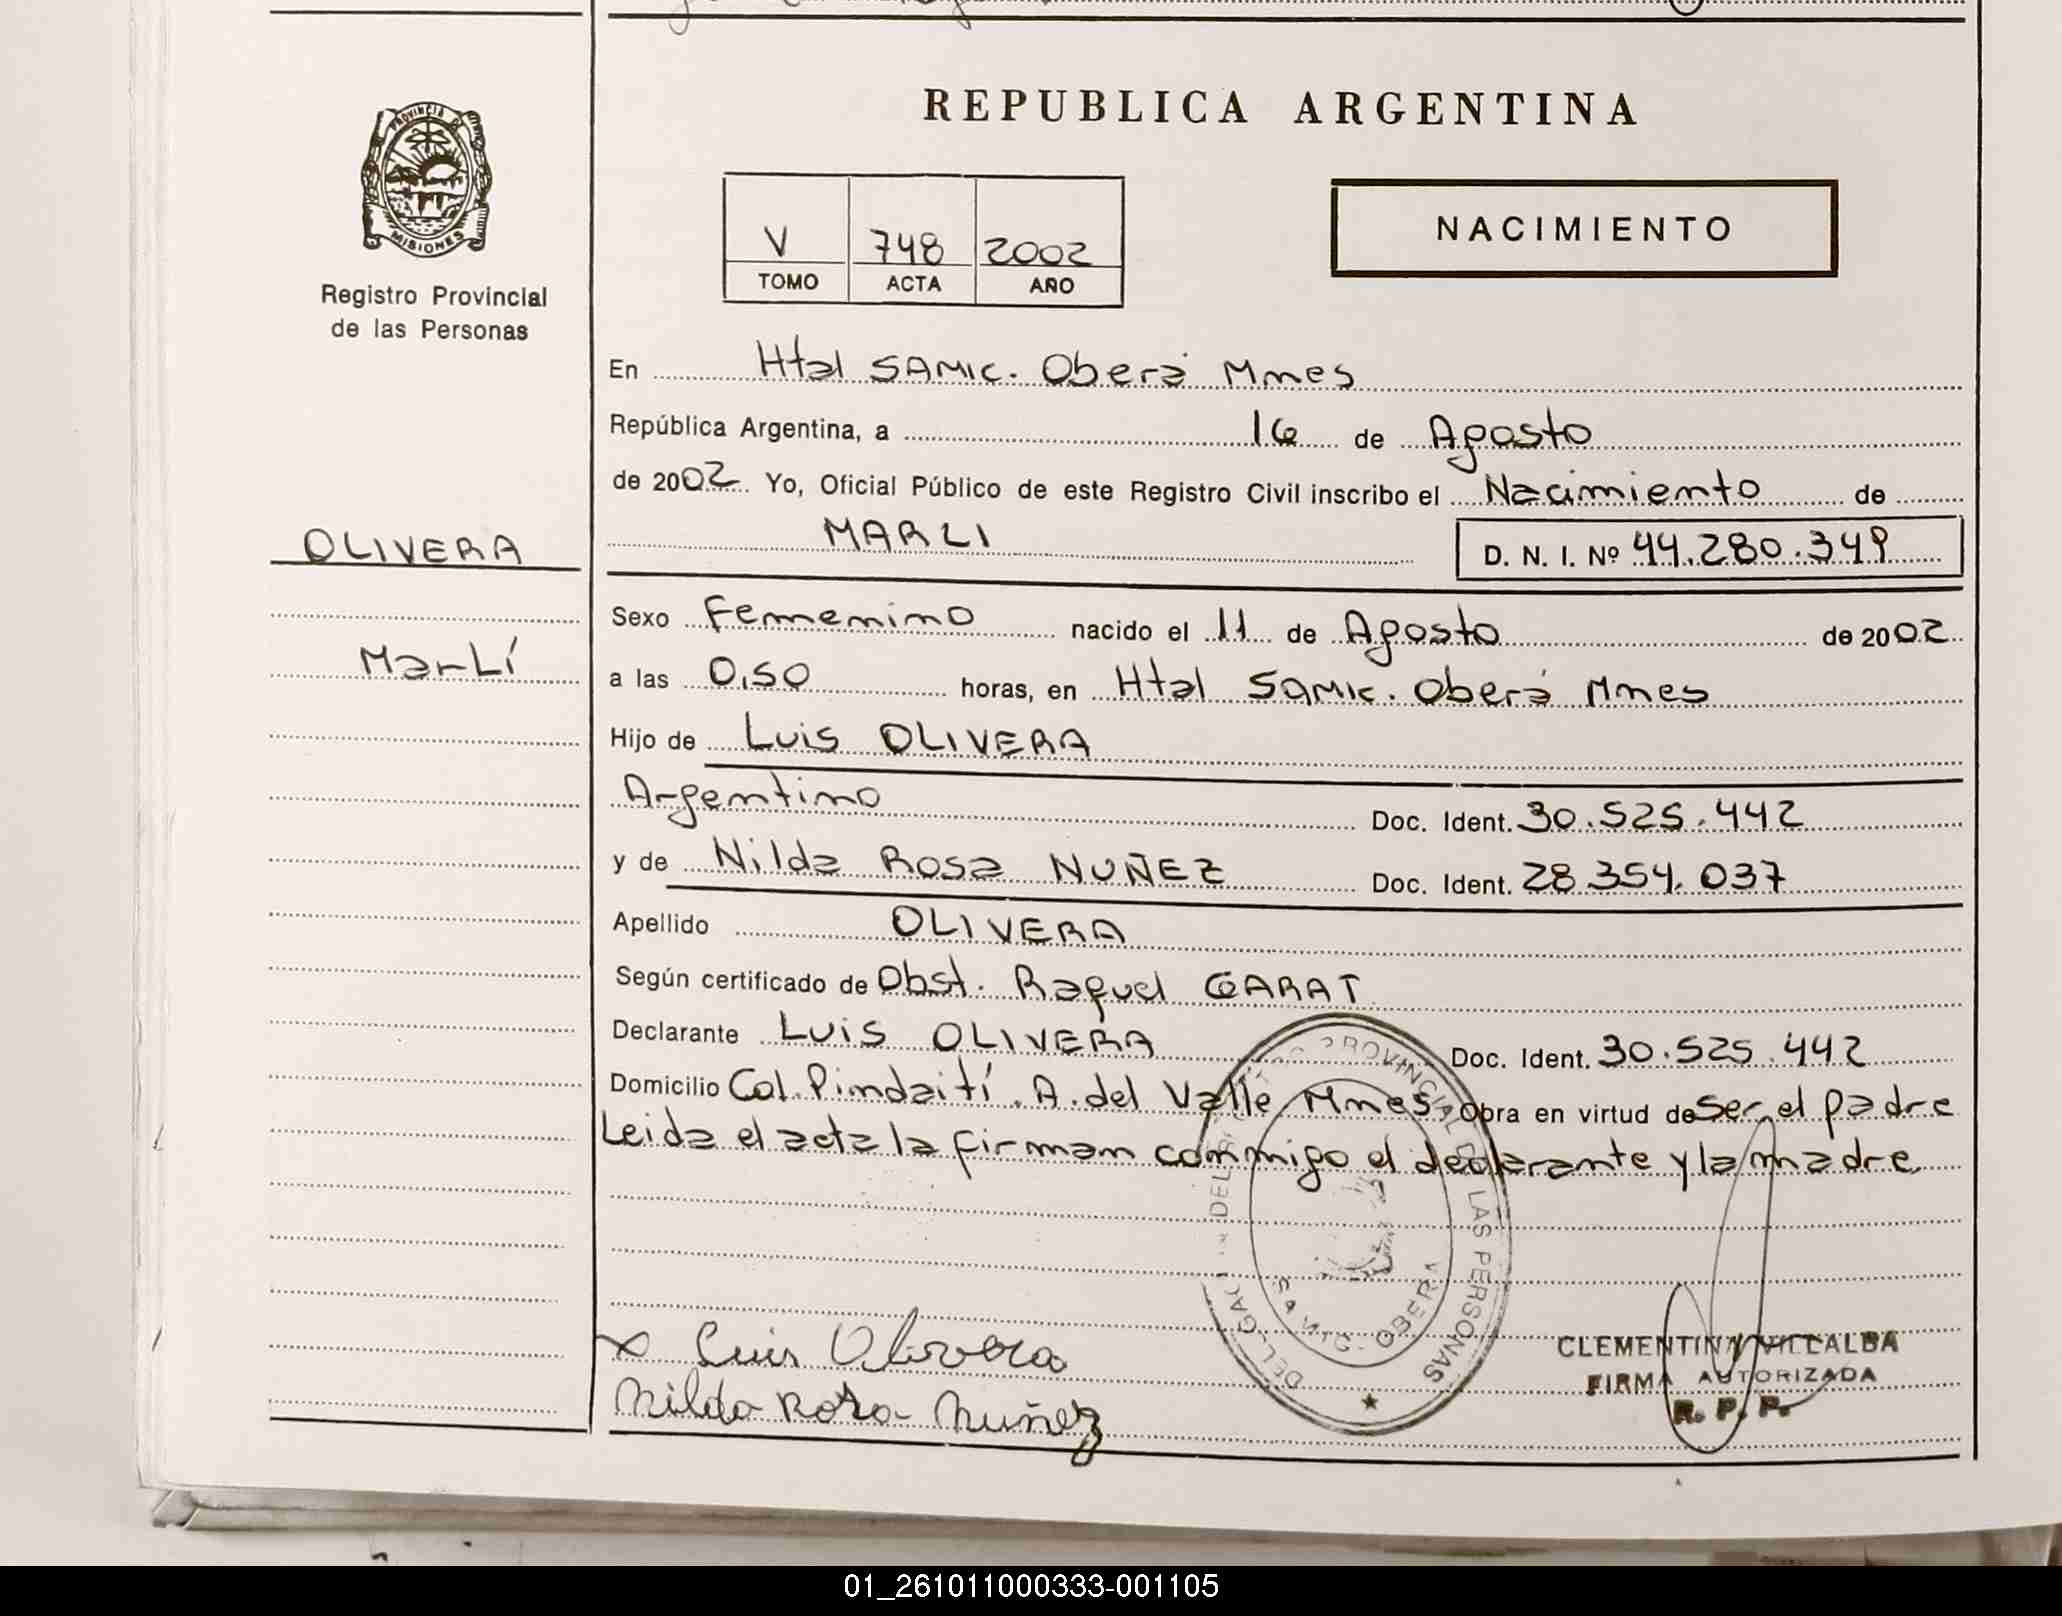 REPUBLICA ARGENTINA
PROVINCIA DE
MISIONES
Registro Provincial
de las Personas
V 748 2002
TOMO ACTA AÑO
NACIMIENTO
En Htal SAMIC. Oberá Mnes
República Argentina, a 16 de Agosto
de 2002 Yo, Oficial Público de este Registro Civil inscribo el Nacimiento de
OLIVERA
MARLI D. N. I. Nº 44.280.349
Sexo Femenino nacido el 11 de Agosto de 2002
Marlí
a las 0,50 horas, en Htal SAMIC. Oberá Mnes
Hijo de Luis OLIVERA
Argentino Doc. Ident. 30.525.442
y de Nilda Rosa NUÑEZ Doc. Ident. 28.354.037
Apellido OLIVERA
Según certificado de Obst. Raquel GARAT
Declarante Luis OLIVERA Doc. Ident. 30.525.442
Domicilio Col. Pindaití. A. del Valle Mnes Obra en virtud de ser el padre
Leida el acta la firman conmigo el declarante y la madre.
PROVINCIAL DE LAS PERSONAS
OBERA
Luis Olivera
Nilda Rosa Nuñez
CLEMENTINA VILLALBA
FIRMA AUTORIZADA
R. P. P.
01_261011000333-001105